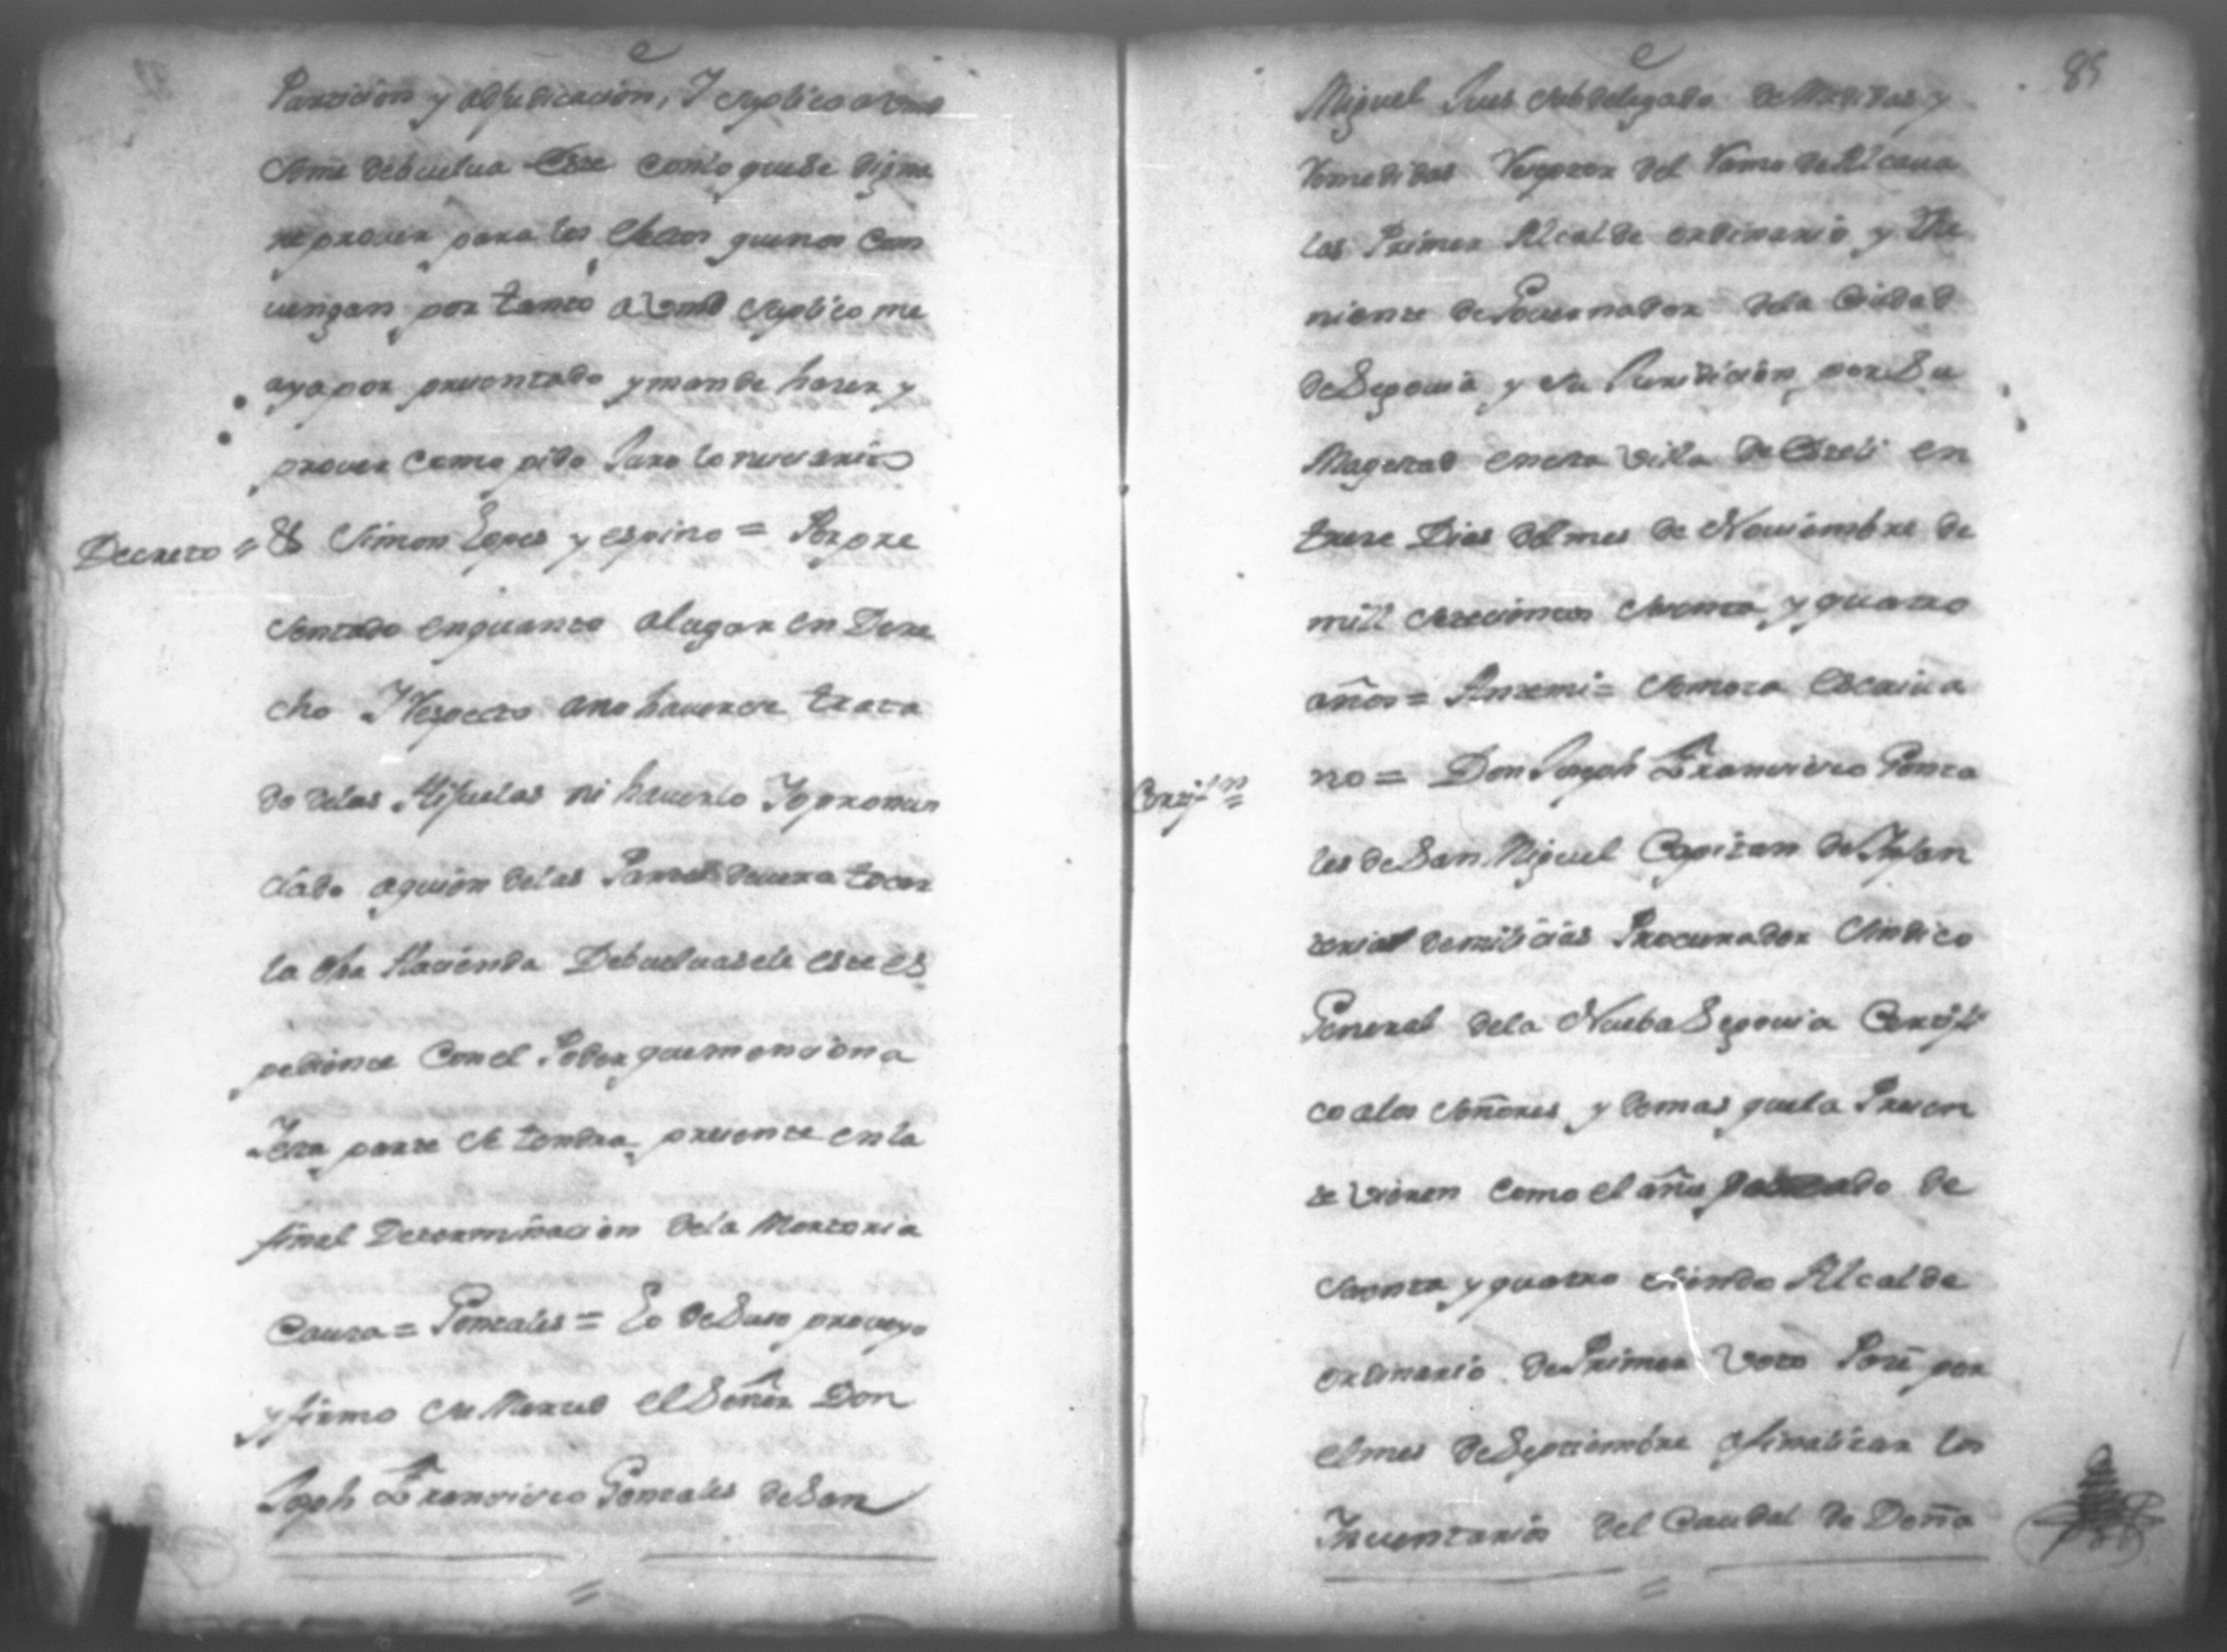 Particion y adjudicacion, I suplico a Vmd
seme debuelua este conlo que Se digna
re prouer para los efectos quenos Con
uengan por tanto a Vmd suplico me
aya por presentado y mande haser y
prouer como pido Juro lo nesesario
Decreto = & Simon Lopes y espino = Por pre
sentado enquanto alugar en Dere
cho I Respecto ano hauerse trata
do delas Hijuelas ni hauerlo Io pronun
ciado aquien delas Partes deuera tocar
la dha Hacienda Debueluasele este es
pediente Con el Poder que menciona
I esta parte se tendra presente en la
final Determinacion dela Mortoria
Causa = Gonzales = Lo de Suso proueyo
y firmo su Merced el Señor Don
Joseph Francisco Gonzales de San
85
Miguel Jues Subdelegado de Medidas y
Remedidas Reseptor del Ramo de Alcaua
las Primer Alcalde ordinario y The
niente de Gouernador dela Ciudad
de Segouia y su Juridicion por Su
Magestad enesta Villa de Esteli en
trese Dias del mes de Nouiembre de
mill setecientos setenta y quatro
años = Antemi = Somoza Escriua
Certifn =
no = Don Joseph Francisco Gonza
les de San Miguel Capitan de Infan
teria de milicias Procurador Sindico
General dela Nueba Segouia Certifi
co alos Señores y demas que la Presen
te Vieren Como el año pasado de
setenta y quatro siendo Alcalde
ordinario de Primer Voto Pase por
el mes de Septiembre a finalizar los
Inuentarios del Caudal de Doña